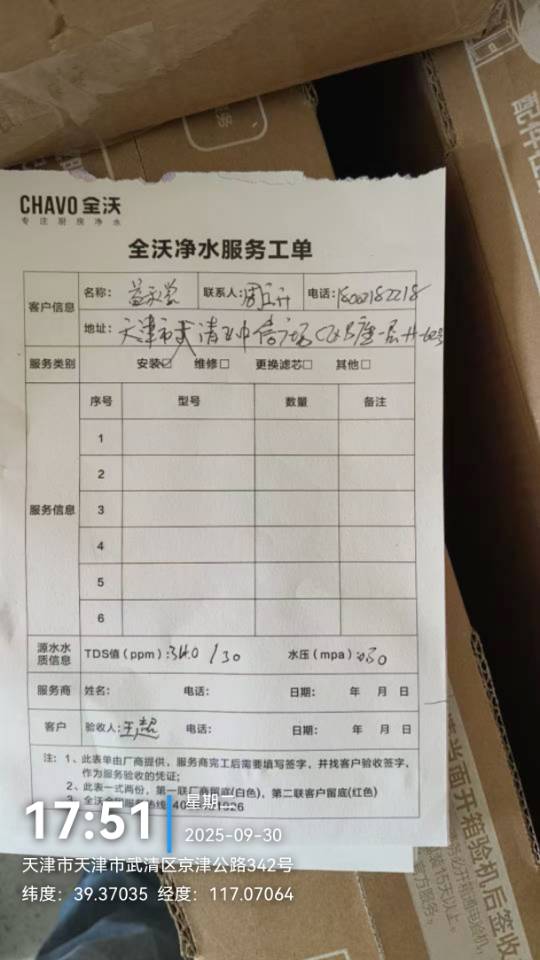 CHAVO 全沃
专注厨房净水
全沃净水服务工单
客户信息 名称: 益禾堂 联系人: 电话: 18002182218
地址: 天津市武清区 广场
服务类别 安装☑ 维修□ 更换滤芯□ 其他□
服务信息 序号 型号 数量 备注
1
2
3
4
5
6
源水水质信息 TDS值(ppm): 340 / 30 水压(mpa):
服务商 姓名: 电话: 日期: 年 月 日
客户 验收人: 王超 电话: 日期: 年 月 日
注: 1、此表单由厂商提供,服务商完工后需要填写签字,并找客户验收签字,
作为服务验收的凭证;
2、此表一式两份,第一联厂商留底(白色),第二联客户留底(红色)
17:51
2025-09-30
天津市天津市武清区京津公路342号
纬度: 39.37035 经度: 117.07064
当面开箱验机后签收